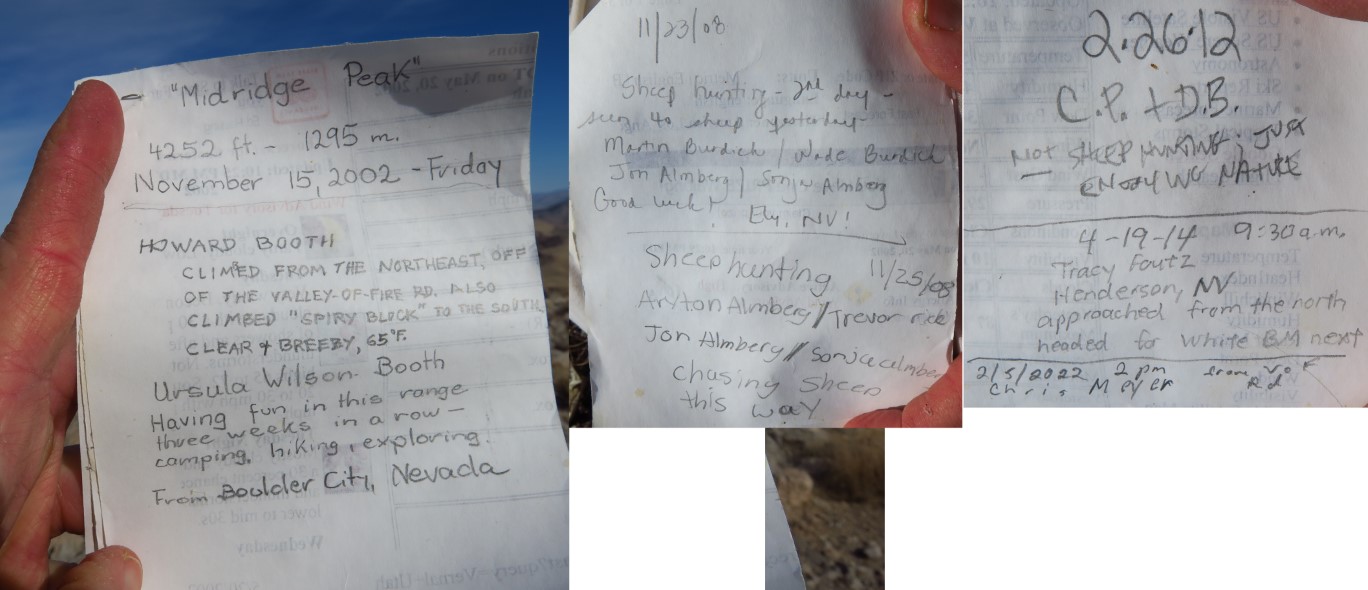 - "Midridge Peak"
4252 ft. - 1295 m.
November 15, 2002 - Friday
HOWARD BOOTH
CLIMED FROM THE NORTHEAST, OFF
OF THE VALLEY-OF-FIRE RD. ALSO
CLIMBED "SPIRY BLOCK" TO THE SOUTH
CLEAR & BREEZY, 65°F.
Ursula Wilson-Booth
Having fun in this range
three weeks in a row —
camping, hiking, exploring.
From Boulder City, Nevada
11/23/08
Sheep hunting - 2nd day -
seen 40 sheep yesterday-
Martin Burdick / Wade Burdick
Jon Almberg / Sonja Almberg
Good luck! Ely, NV!
Sheep hunting 11/25/08
Aryton Almberg / Trevor
Jon Almberg / Sonja almberg
chasing sheep
this way
2.26.12
C.P. + D.B.
NOT SHEEP HUNTING, JUST
ENJOYING NATURE
4-19-14 9:30 a.m.
Tracy Foutz
Henderson, NV
approached from the north
headed for White BM next
2/5/2022 2 pm from VoF
Chris Meyer Rd